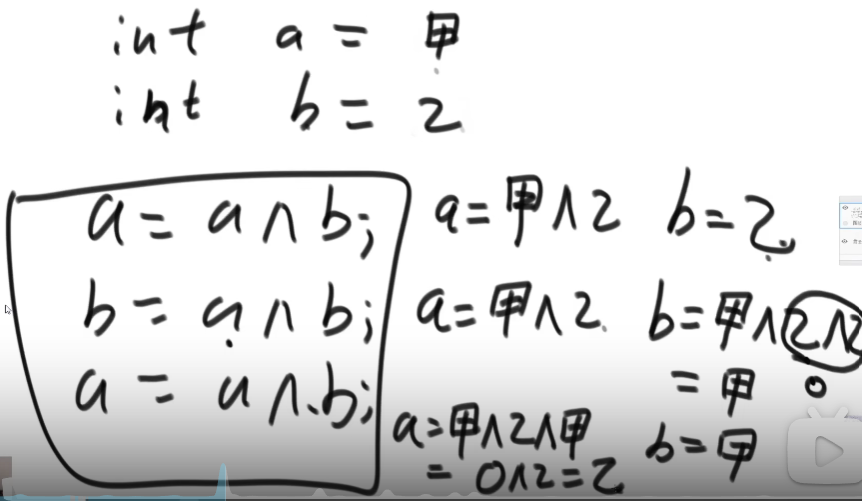 int a = 甲
int b = 乙
a = a ∧ b; a=甲∧乙 b=乙
b = a ∧ b; a=甲∧乙 b=甲∧乙∧乙
=甲 0
a = a ∧ b; a=甲∧乙∧甲 b=甲
= 0∧乙=乙